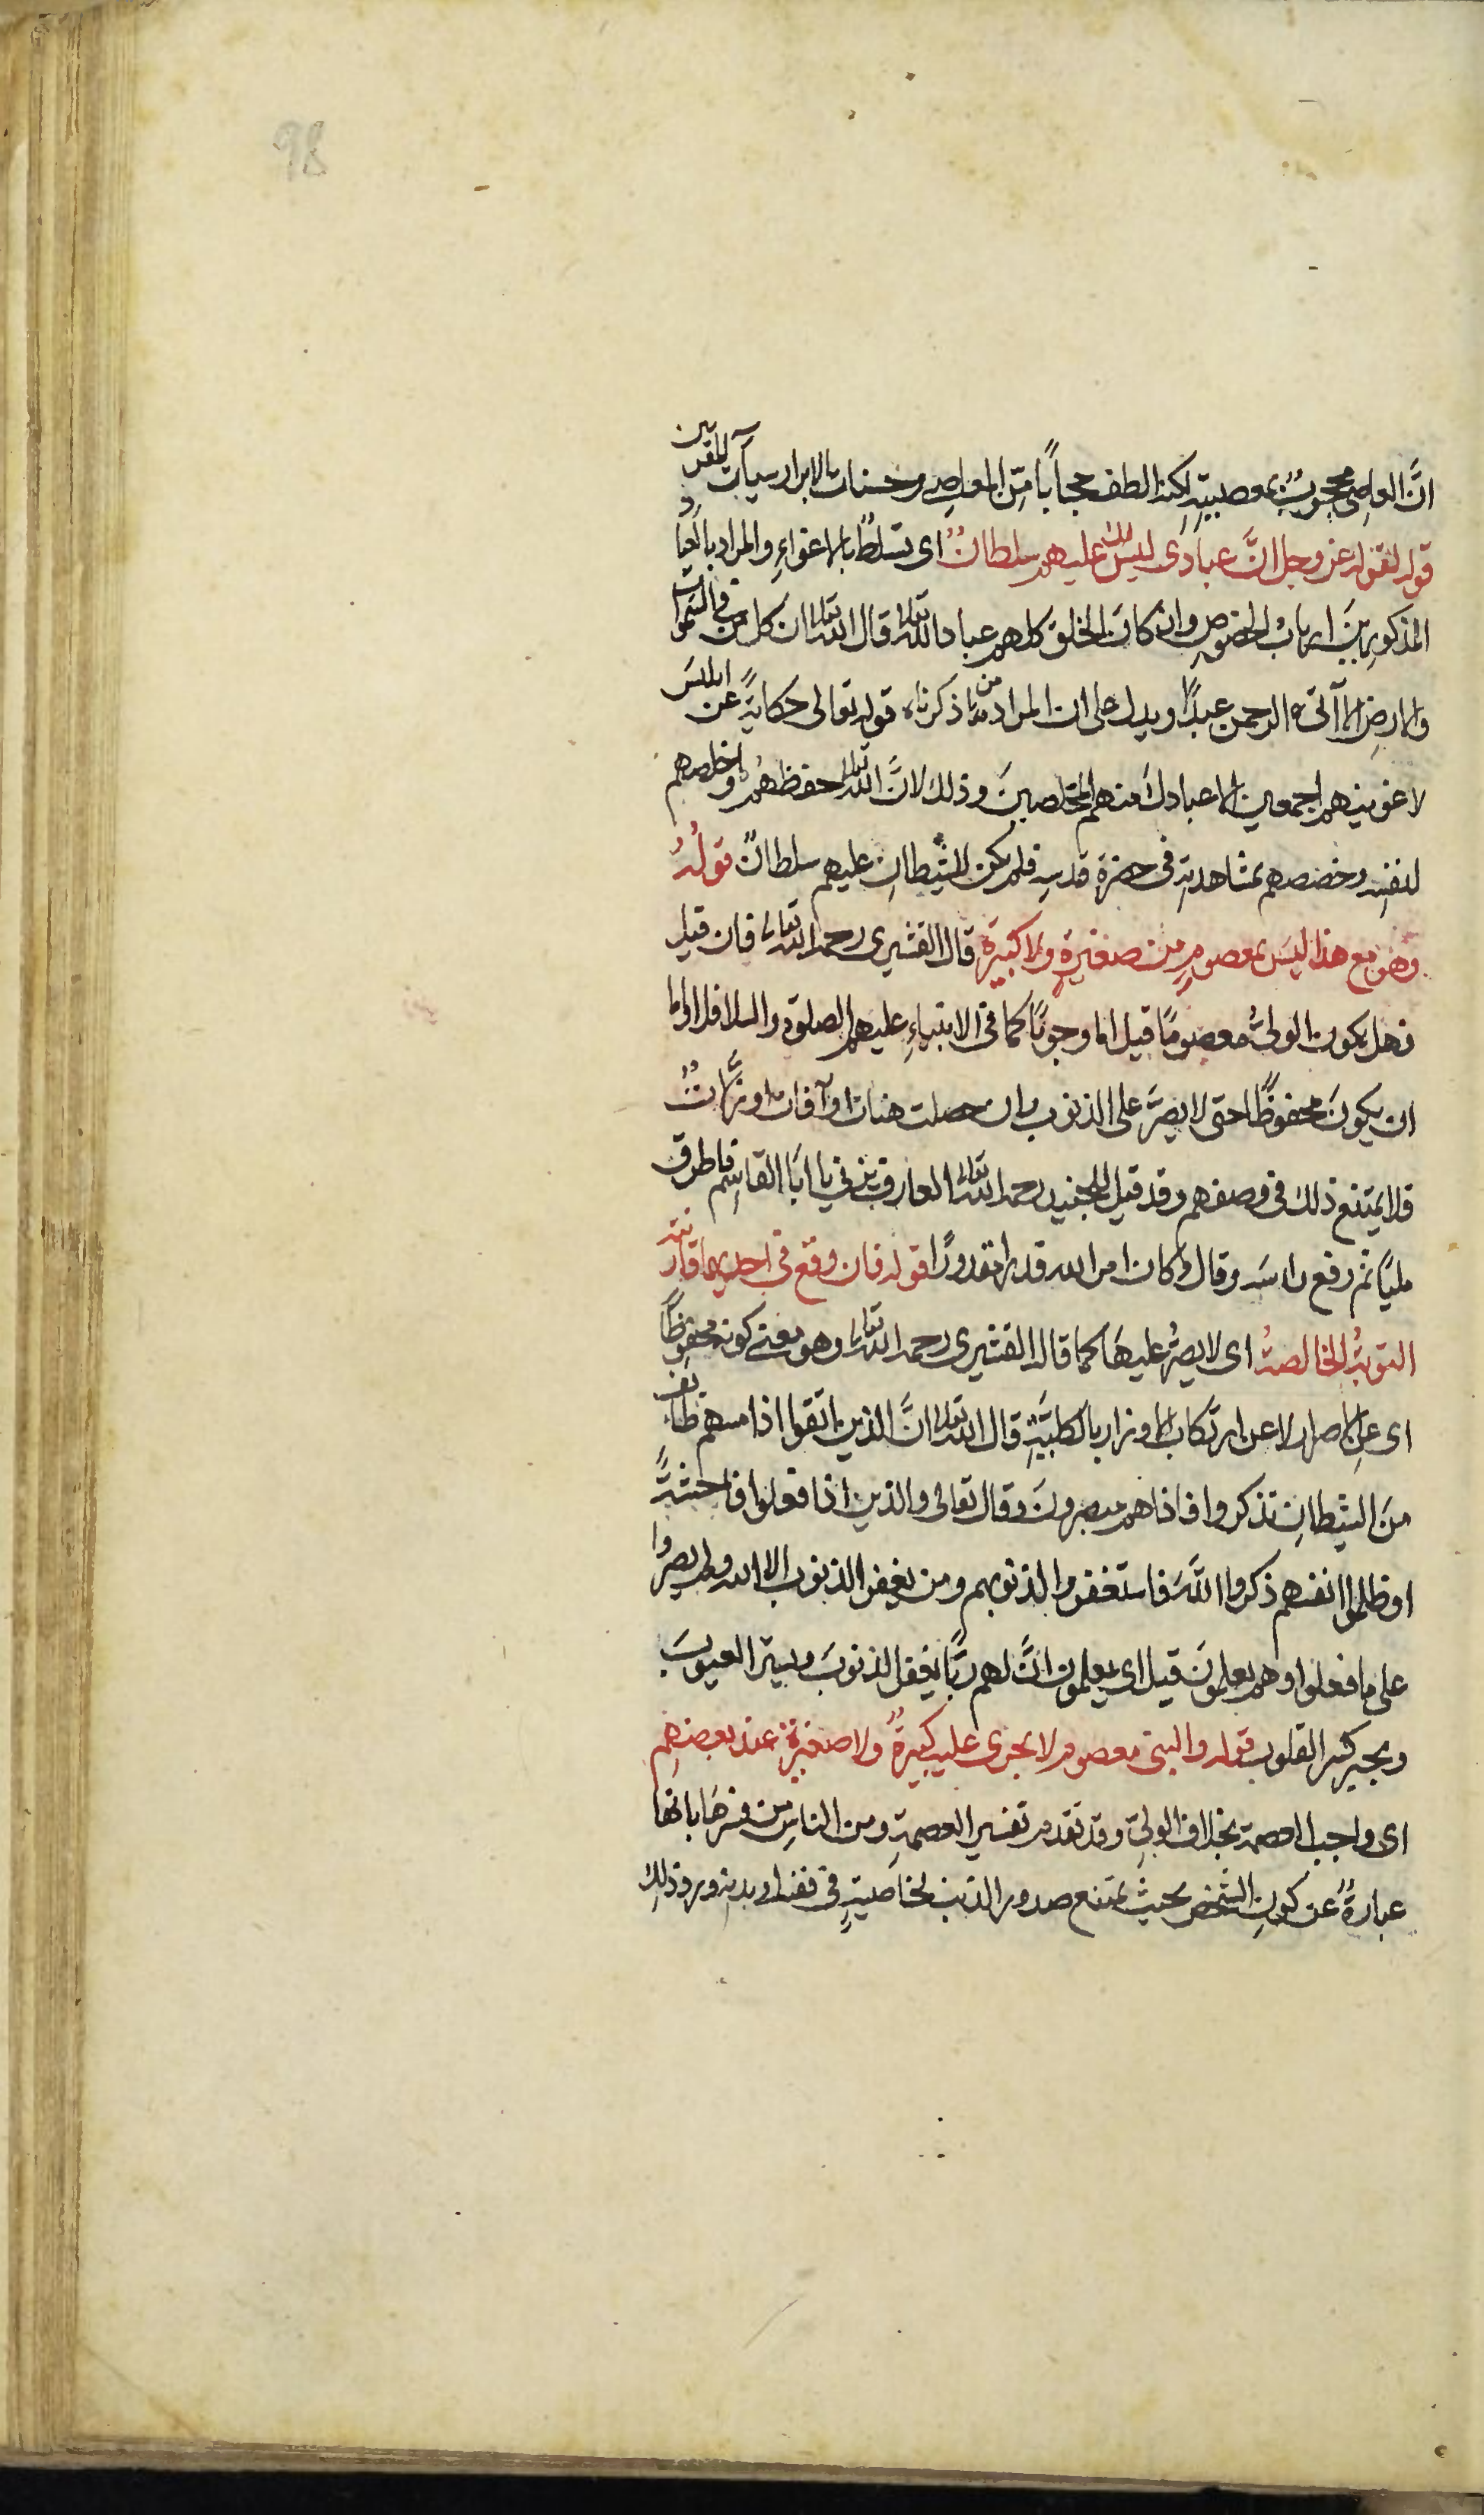 98
انَّ العاصى محجوبٌ بمعصيتهِ لكنه الطف حجاباً من المعاصى وحسنات الابرار سيآت المقربين
قوله لقوله عز وجل انَّ عبادى ليس لك عليهم سلطانٌ اى تسلطًا بالاغواءِ والمراد بالعباد
المذكورين ارباب الخصوص وان كانَ الخلق كلهم عباد الله تعالى قال الله تعالى ان كل من فى السموات
والارضِ الا آتى الرحمن عبدًا ويدل على ان المراد من ما ذكرناه قوله تعالى حكايةً عن ابليسَ
لاغوينهم اجمعين الا عبادك منهم المخلصينَ وذلك لانَّ الله تعالى حفظهم واخلصهم
لنفسه وخصصهم بمشاهدته فى حضرة قدسه فلم يكن للشيطانِ عليهم سلطانٌ قولهُ
وهو مع هذا ليسَ بمعصومٍ من صغيرةٍ ولا كبيرةٍ قال القشيرى رحمه الله تعالى فان قيل
فهل يكون الولىُّ معصومًا قيل اما وجوبًا كما فى الانبياءِ عليهم الصلوة والسلام فلا واما
ان يكونَ محفوظًا حتى لا يصرَّ على الذنوب وان حصلت هنات او آفات او زلَّاتٌ
فلا يمتنع ذلك فى وصفهم وقد قيل للجنيد رحمه الله تعالى العارف يزنى يا ابا القاسم فاطرق
مليًا ثم رفع راسَه وقال وكان امر الله قدرا مقدورًا قوله فان وقع فى احديهما قارنته
التوبةُ الخالصةُ اى لا يصرُّ عليها كما قاله القشيرى رحمه الله تعالى وهو معنى كونه محفوظًا
اى عن الاصرار لا عن ارتكاب الاوزار بالكليةِ قال الله تعالى انَّ الذين اتقوا اذا مسهم طائف
منَ الشيطانِ تذكروا فاذا هم مبصرونَ وقال تعالى والذين اذا فعلوا فاحشةً
او ظلموا انفسهم ذكروا اللّهَ فاستغفروا لذنوبهم ومن يغفر الذنوب الا الله ولم يصروا
على ما فعلوا وهم يعلمونَ قيل اى يعلمون انَّ لهم ربًّا يغفر الذنوبَ ويستر العيوبَ
ويجبر كسر القلوب قوله والنبى معصوم لا يجرى عليه كبيرةٌ ولا صغيرة عند بعضهم
اى واجب العصمة بخلاف الولىِّ وقد تقدم تفسير العصمةِ ومن الناسِ من فسرها بانها
عبارةٌ عن كونِ الشخص بحيث يمتنع صدور الذنب لخاصيةٍ فى نفسه او بدنه ورد ذلك